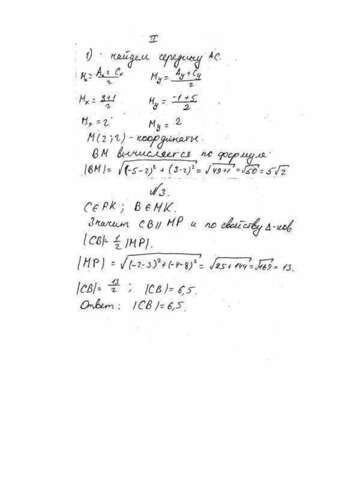 II
1) найдем середину AC.
Mx = Ax + Cx / 2 My = Ay + Cy / 2
Mx = 3+1 / 2 My = -1+5 / 2
Mx = 2 My = 2
M(2;2) - координаты.
BM вычисляется по формуле
|BM| = √(-5-2)² + (3-2)² = √49+1 = √50 = 5√2
№3.
C∈PK; B∈MK.
Значит CB || MP и по свойству Δ-ков
|CB| = 1/2 |MP|.
|MP| = √(-2-3)² + (-4-8)² = √25+144 = √169 = 13.
|CB| = 13/2; |CB| = 6,5.
Ответ: |CB| = 6,5.